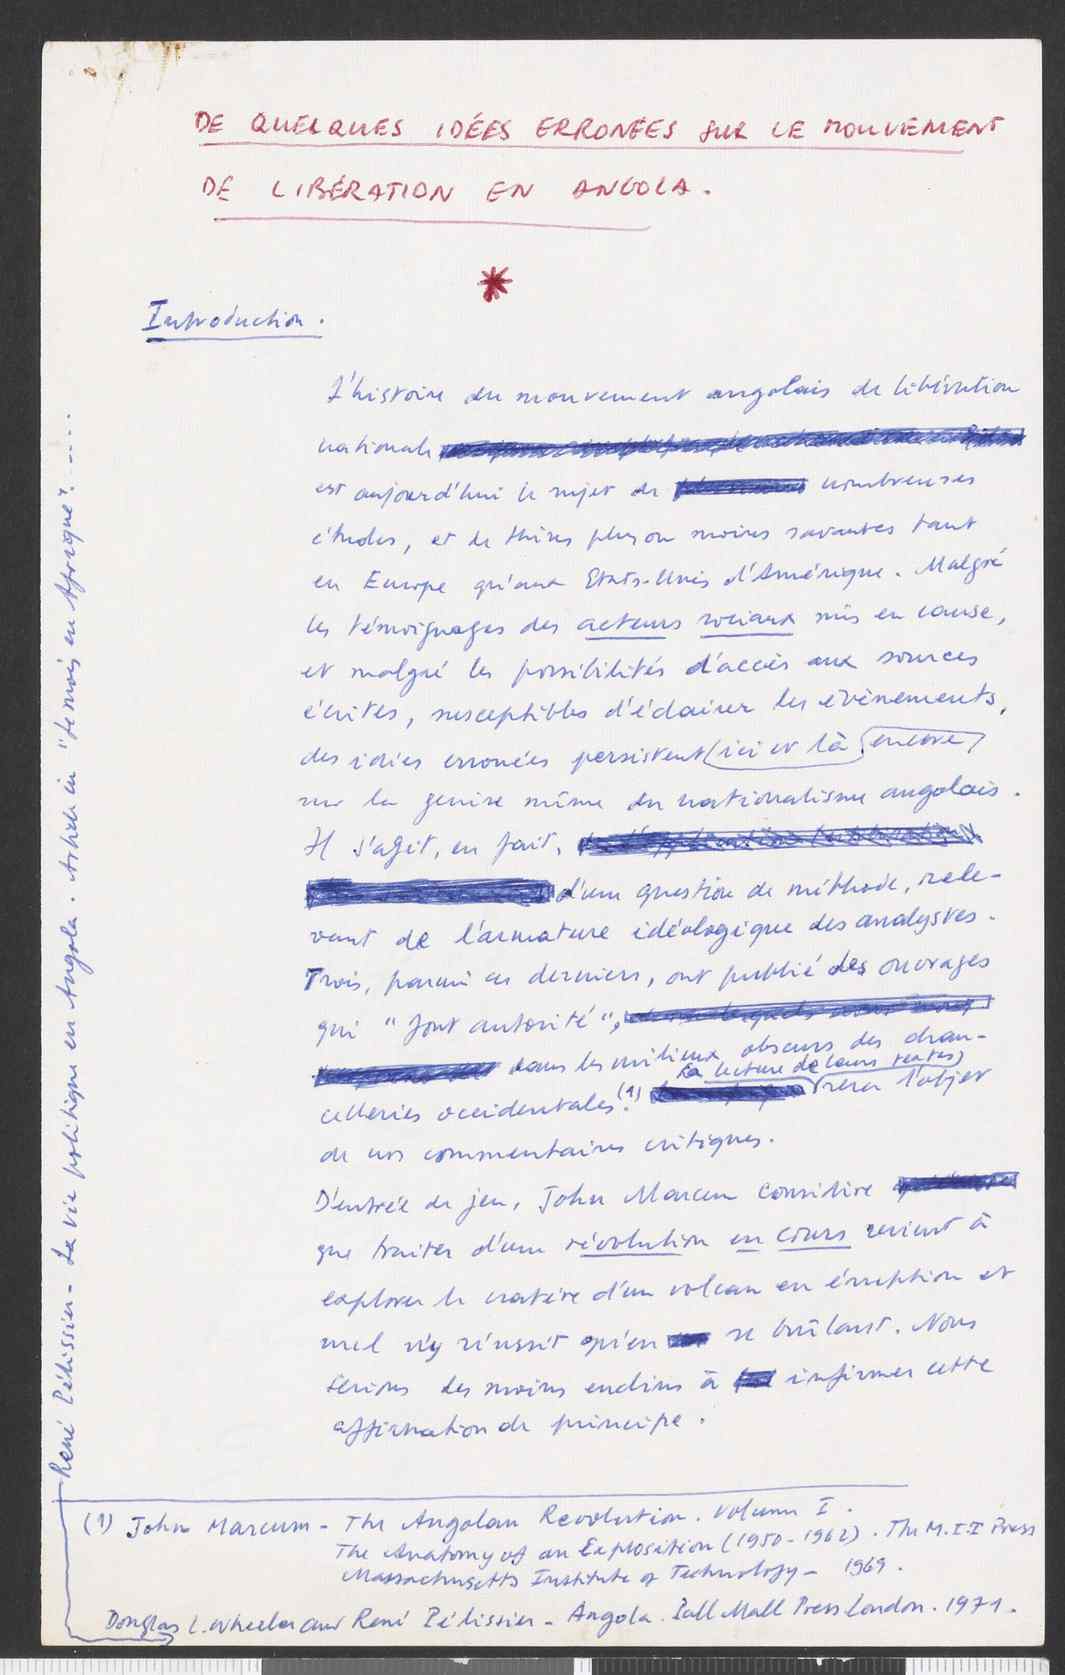 DE QUELQUES IDÉES ERRONÉES SUR LE MOUVEMENT
DE LIBÉRATION EN ANGOLA.
Introduction.
L'histoire du mouvement angolais de libération
nationale
est aujourd'hui le sujet de nombreuses
études, et de thèses plus ou moins savantes tant
en Europe qu'aux Etats-Unis d'Amérique. Malgré
les témoignages des acteurs sociaux mis en cause,
et malgré les possibilités d'accès aux sources
écrites, susceptibles d'éclairer les évènements,
des idées erronées persistent ici et là encore
sur la genèse même du nationalisme angolais.
Il s'agit, en fait,
d'une question de méthode, rele-
vant de l'armature idéologique des analystes.
Trois, parmi ces derniers, ont publié des ouvrages
qui "font autorité",
dans les milieux obscurs des chan-
la lecture de leurs textes
celleries occidentales.(1) sera l'objet
de nos commentaires critiques.
D'entrée de jeu, John Marcum considère
que traiter d'une révolution en cours revient à
explorer le cratère d'un volcan en éruption et
nul n'y réussit qu'en se brûlant. Nous
serions des moins enclins à infirmer cette
affirmation de principe.
(1) John Marcum - The Angolan Revolution. Volume I.
The Anatomy of an Explosition (1950-1962). The M.I.T Press
Massachusetts Institute of Technology - 1969.
Douglas L. Wheeler and René Pélissier - Angola. Pall Mall Press London. 1971.
René Pélissier - La vie politique en Angola. Article in "Le mois en Afrique". ....